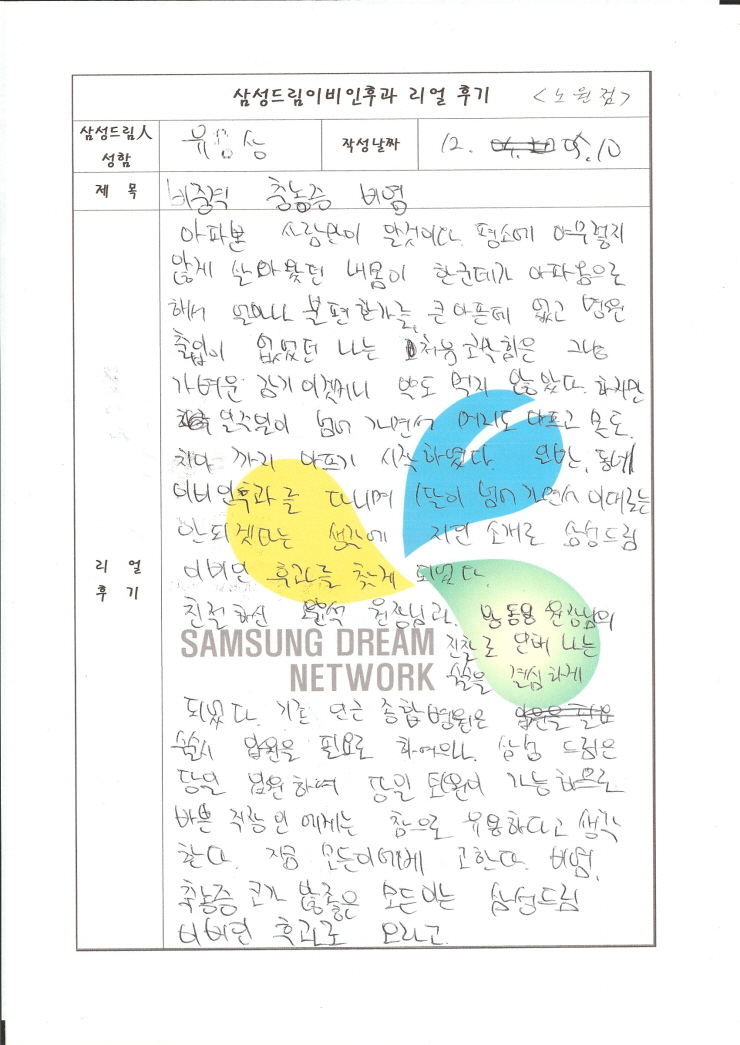 삼성드림이비인후과 리얼 후기 <노원점>
삼성드림人
성함
유 상
작성날짜
12. 05.10
제 목
비중격 축농증 비염
아파본 사람만이 알것이다. 평소에 아무렇지
않게 살아왔던 내몸이 한군데가 아파옴으로
해서 얼마나 불편한가를, 큰아픈데 없고 병원
출입이 없었던 나는 처음 코막힘은 그냥
가벼운 감기이겠거니 약도 먹지 않았다. 하지만
일주일이 넘어 가면서 머리도 아프고 온도.
까지 아프기 시작하였다. 동네
이비인후과를 다니며 1달이 넘어가면서 이대로는
안되겠다는 생각에 지인 소개로 삼성드림
이비인 후과를 찾게 되었다.
친절하신 원장님과. 방동용 원장님의
SAMSUNG DREAM
NETWORK
진찰로 인해 나는
수술을 결심하게
되었다. 기존 인근 종합병원은
수술시 입원을 필요로 하여으나. 삼성 드림은
당일 입원하며 당일 퇴원이 가능하므로
바쁜 직장인에게는 참으로 유용하다고 생각
한다. 지금 모든이에게 고한다. 비염,
축농증 코가 않좋은 모든이는 삼성드림
이비인 후과로 오라고.
리 얼
후 기